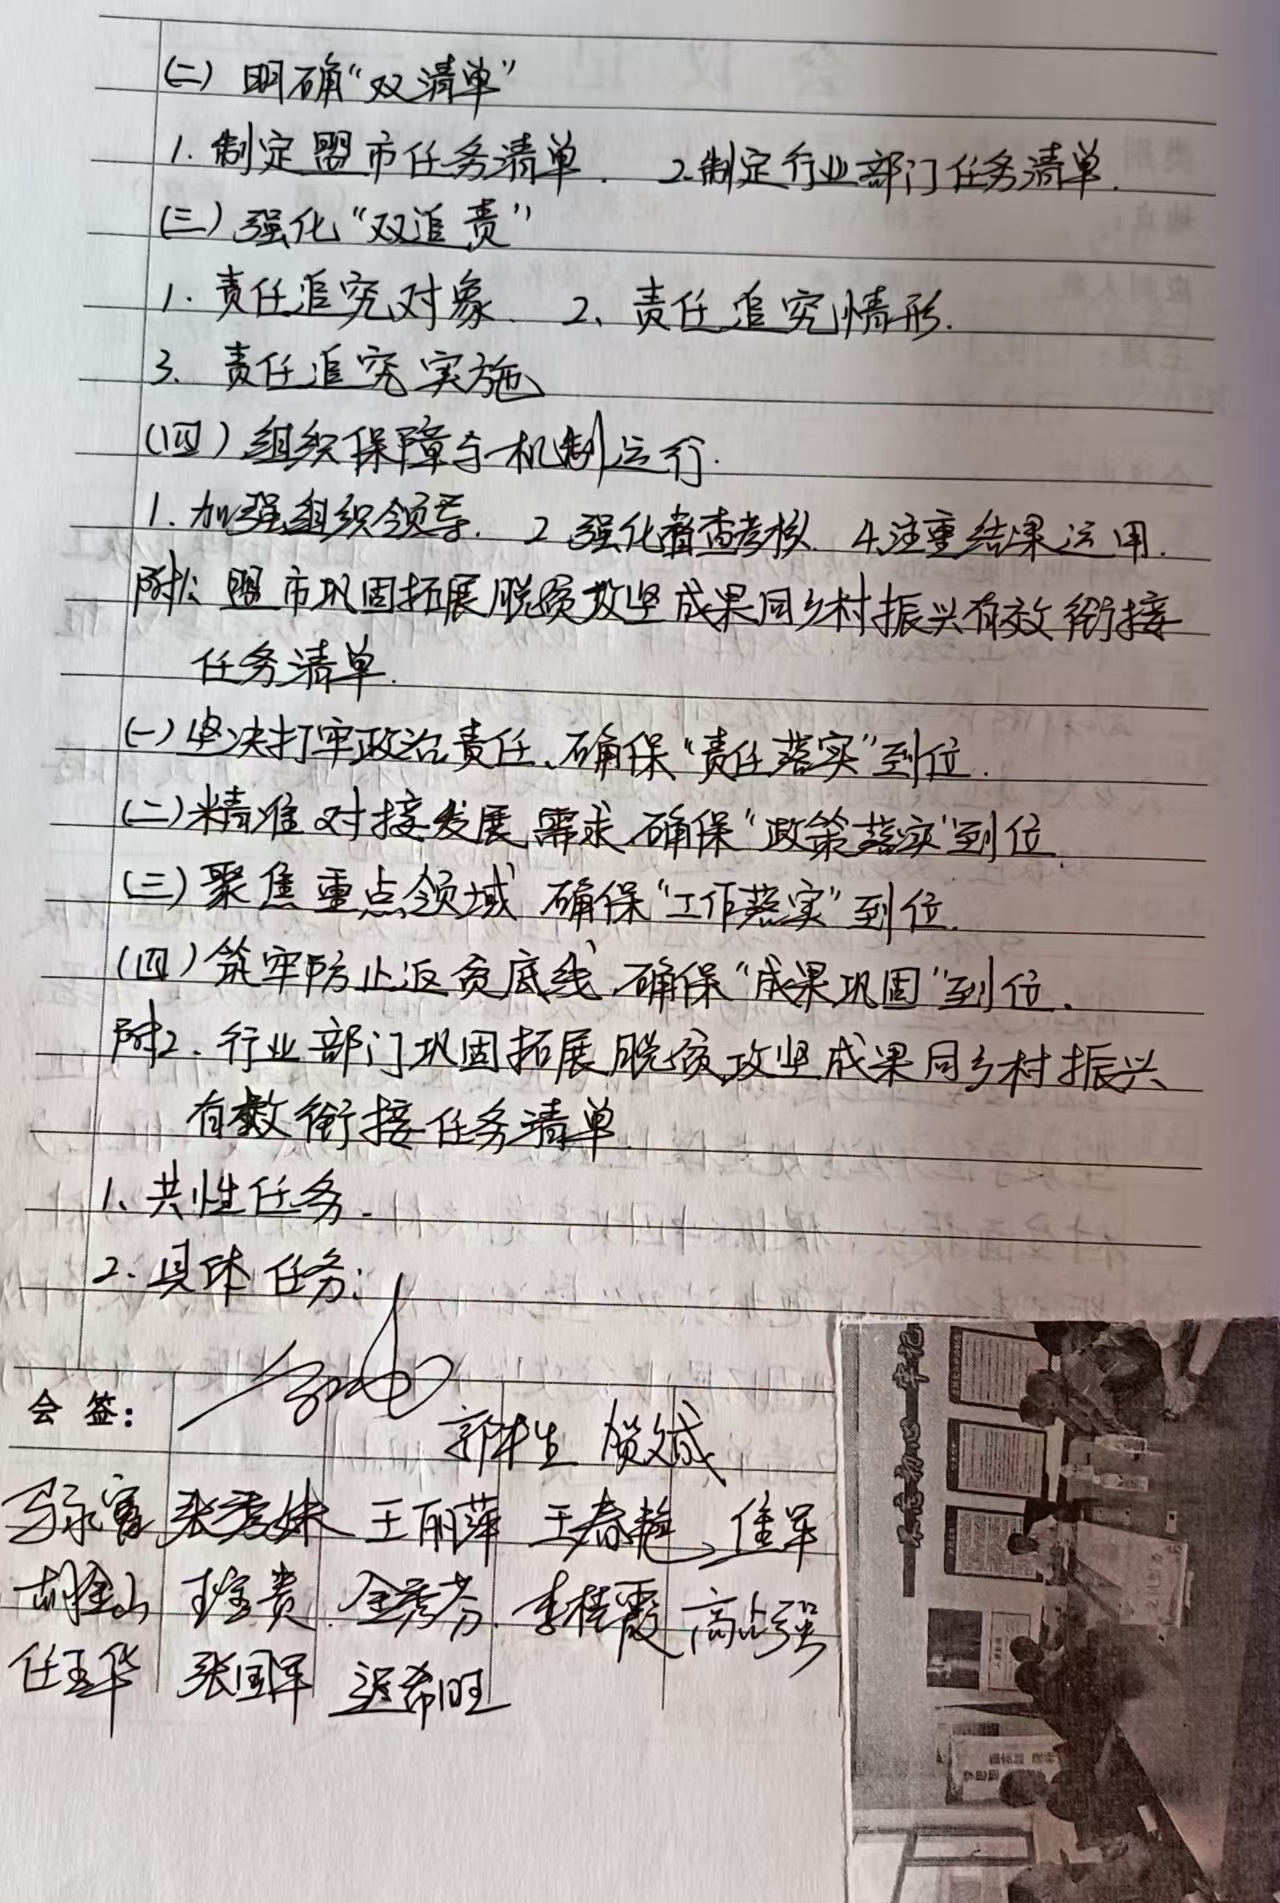 (二) 明确“双清单”
1. 制定盟市任务清单. 2.制定行业部门任务清单.
(三) 强化“双追责”
1. 责任追究对象. 2、责任追究情形.
3. 责任追究实施
(四) 组织保障与机制运行.
1. 加强组织领导. 2 强化督查考核. 4.注重结果运用.
附1: 盟市巩固拓展脱贫攻坚成果同乡村振兴有效衔接
任务清单.
(一) 坚决打牢政治责任、确保“责任落实”到位.
(二) 精准对接发展需求,确保“政策落实”到位.
(三) 聚焦重点领域 确保“工作落实”到位.
(四) 筑牢防止返贫底线,确保“成果巩固”到位.
附2、行业部门巩固拓展脱贫攻坚成果同乡村振兴
有效衔接任务清单.
1、共性任务.
2、具体任务:
会签:
郭生 文成
马永富 张秀妹 王丽萍 王春艳 佳军
胡金山 王宝贵 金秀芬 李桂霞 高占强
任玉华 张国军 迟希旺
不忘初心 牢记